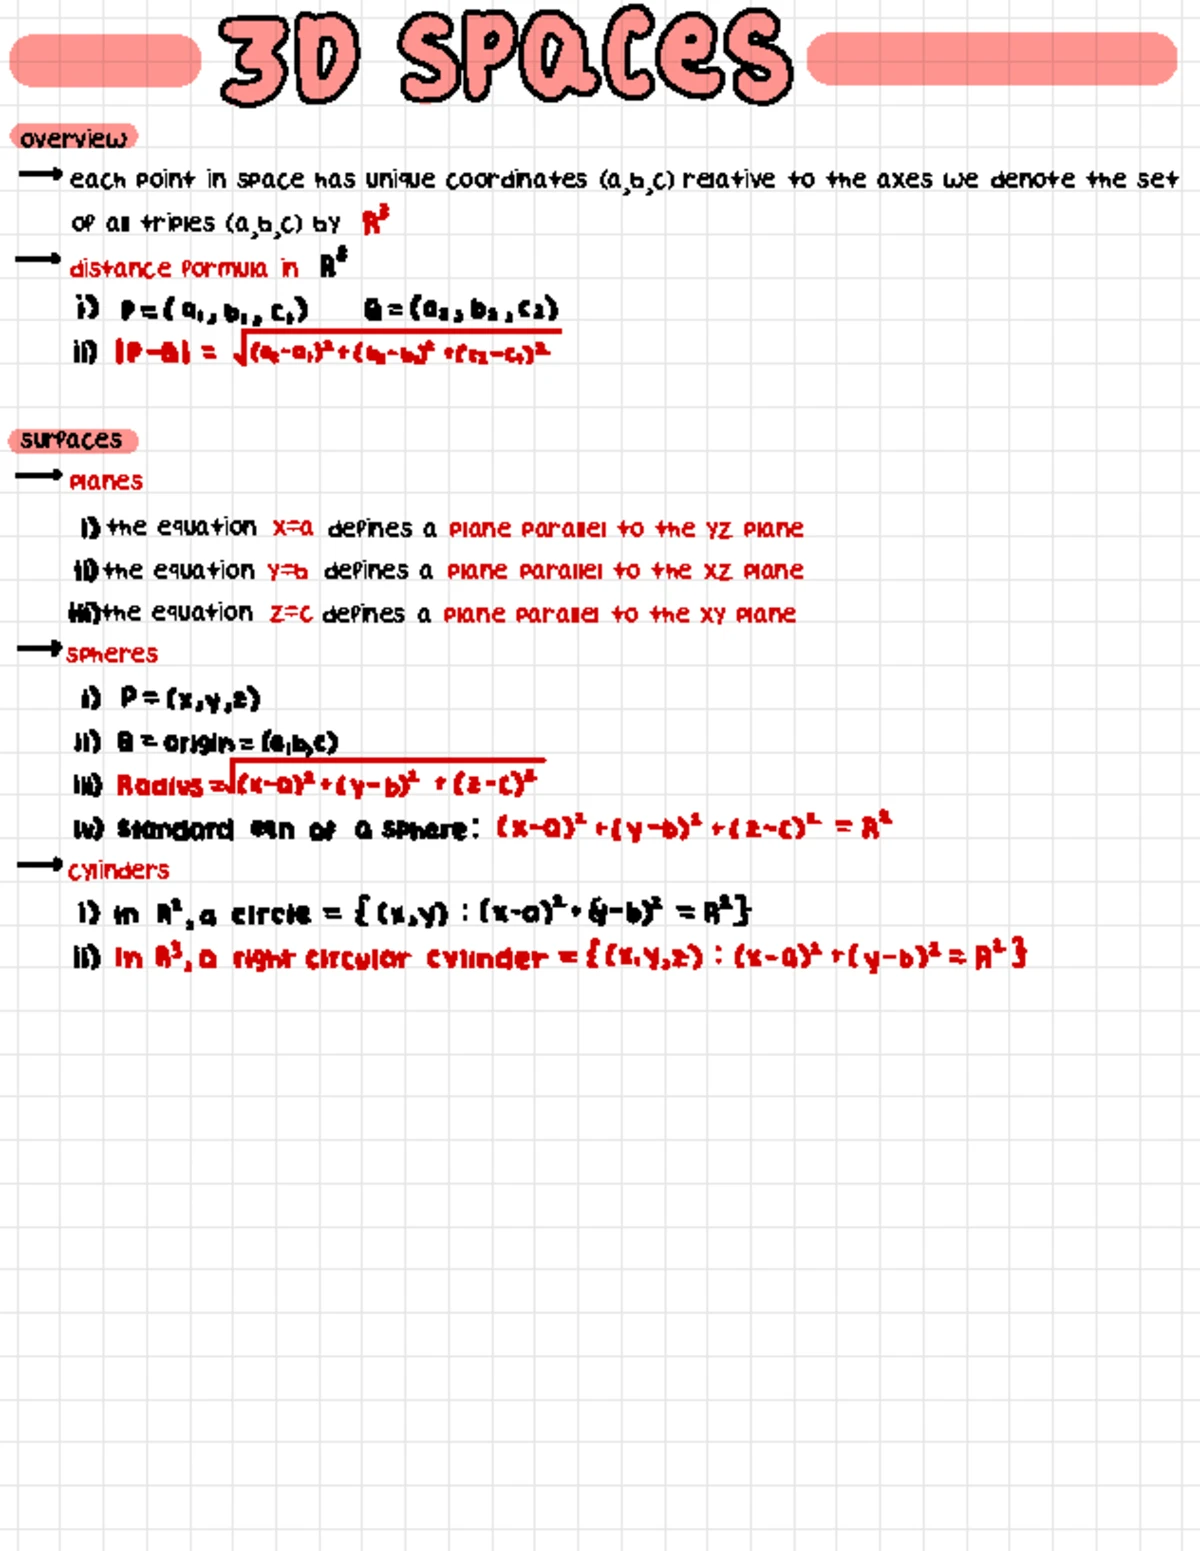 3D Spaces
overview
→ each point in space has unique coordinates (a,b,c) relative to the axes we denote the set
of all triples (a,b,c) by R³
→ distance formula in R³
i) P=(a₁,b₁,c₁) Q=(a₂,b₂,c₂)
ii) |P-Q| = √(a₂-a₁)²+(b₂-b₁)²+(c₂-c₁)²
surfaces
→ planes
i) the equation x=a defines a plane parallel to the yz plane
ii) the equation y=b defines a plane parallel to the xz plane
iii) the equation z=c defines a plane parallel to the xy plane
→ spheres
i) P=(x,y,z)
ii) Q=origin=(a,b,c)
iii) Radius=√(x-a)²+(y-b)²+(z-c)²
iv) Standard eqn of a sphere: (x-a)²+(y-b)²+(z-c)² = R²
→ cylinders
i) in R², a circle = {(x,y) : (x-a)²+(y-b)² = R²}
ii) in R³, a right circular cylinder = {(x,y,z) : (x-a)²+(y-b)² = R²}